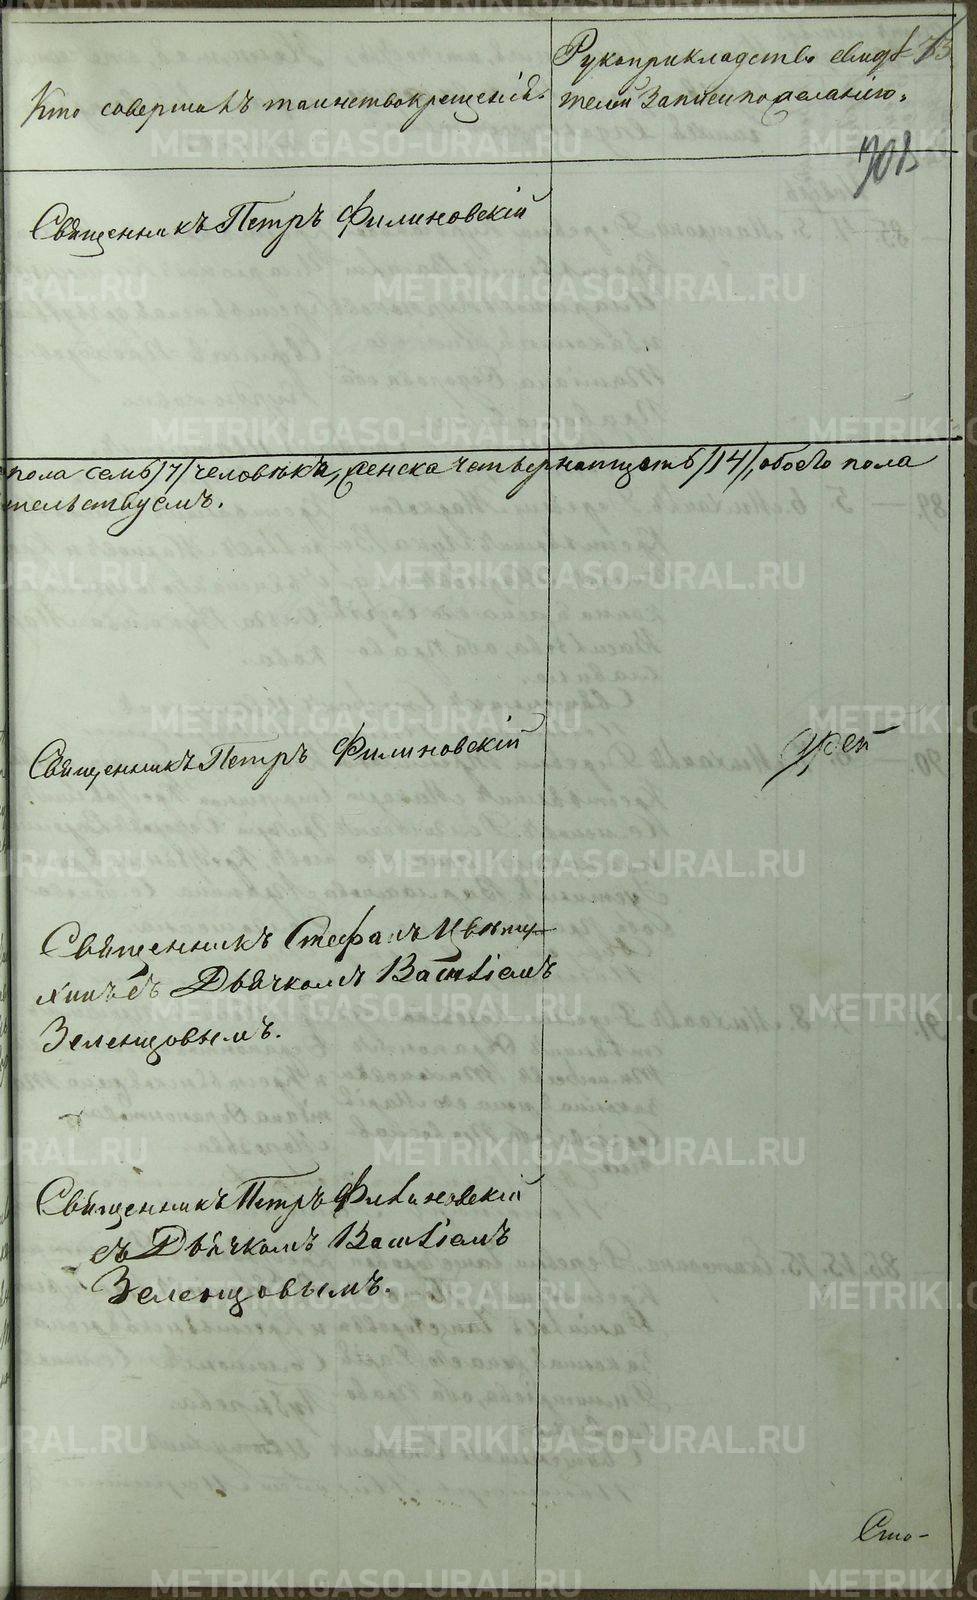 Кто совершалъ таинство крещенія.
Рукоприкладство свидѣ-
телей записи по желанію.
73
Священникъ Петръ Филиновскій
пола семь /7/ человѣкъ, женска четырнатцать /14/, обоего пола
тельствуемъ.
Священникъ Петръ Филиновскій
Священникъ Стефанъ
съ Дьячкомъ Василіемъ
Зеленцовымъ.
Священникъ Петръ Филиновскій
съ Дьячкомъ Василіемъ
Зеленцовымъ.
METRIKI.GASO-URAL.RU